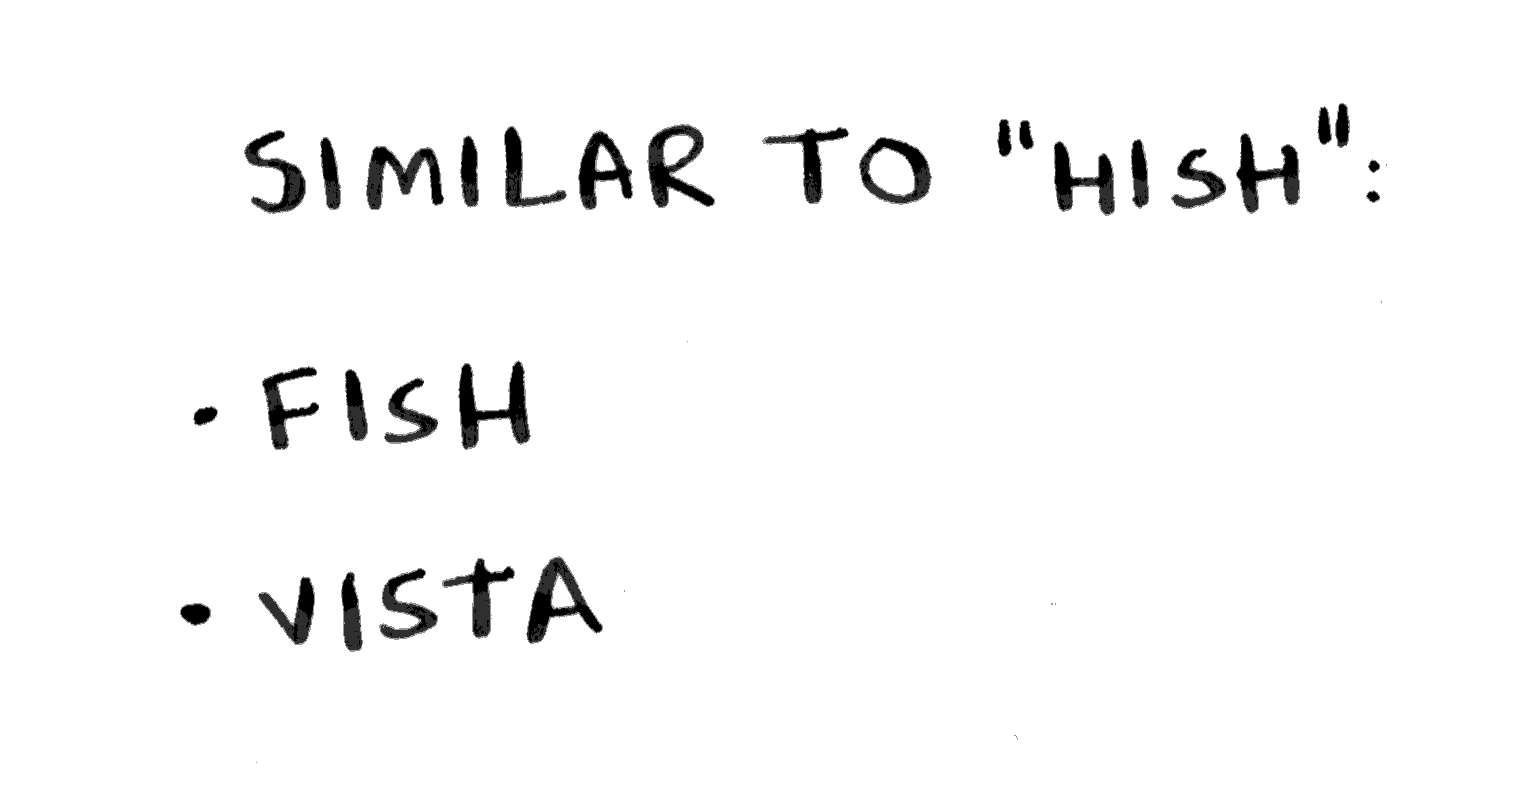 SIMILAR TO "HISH":
• FISH
• VISTA